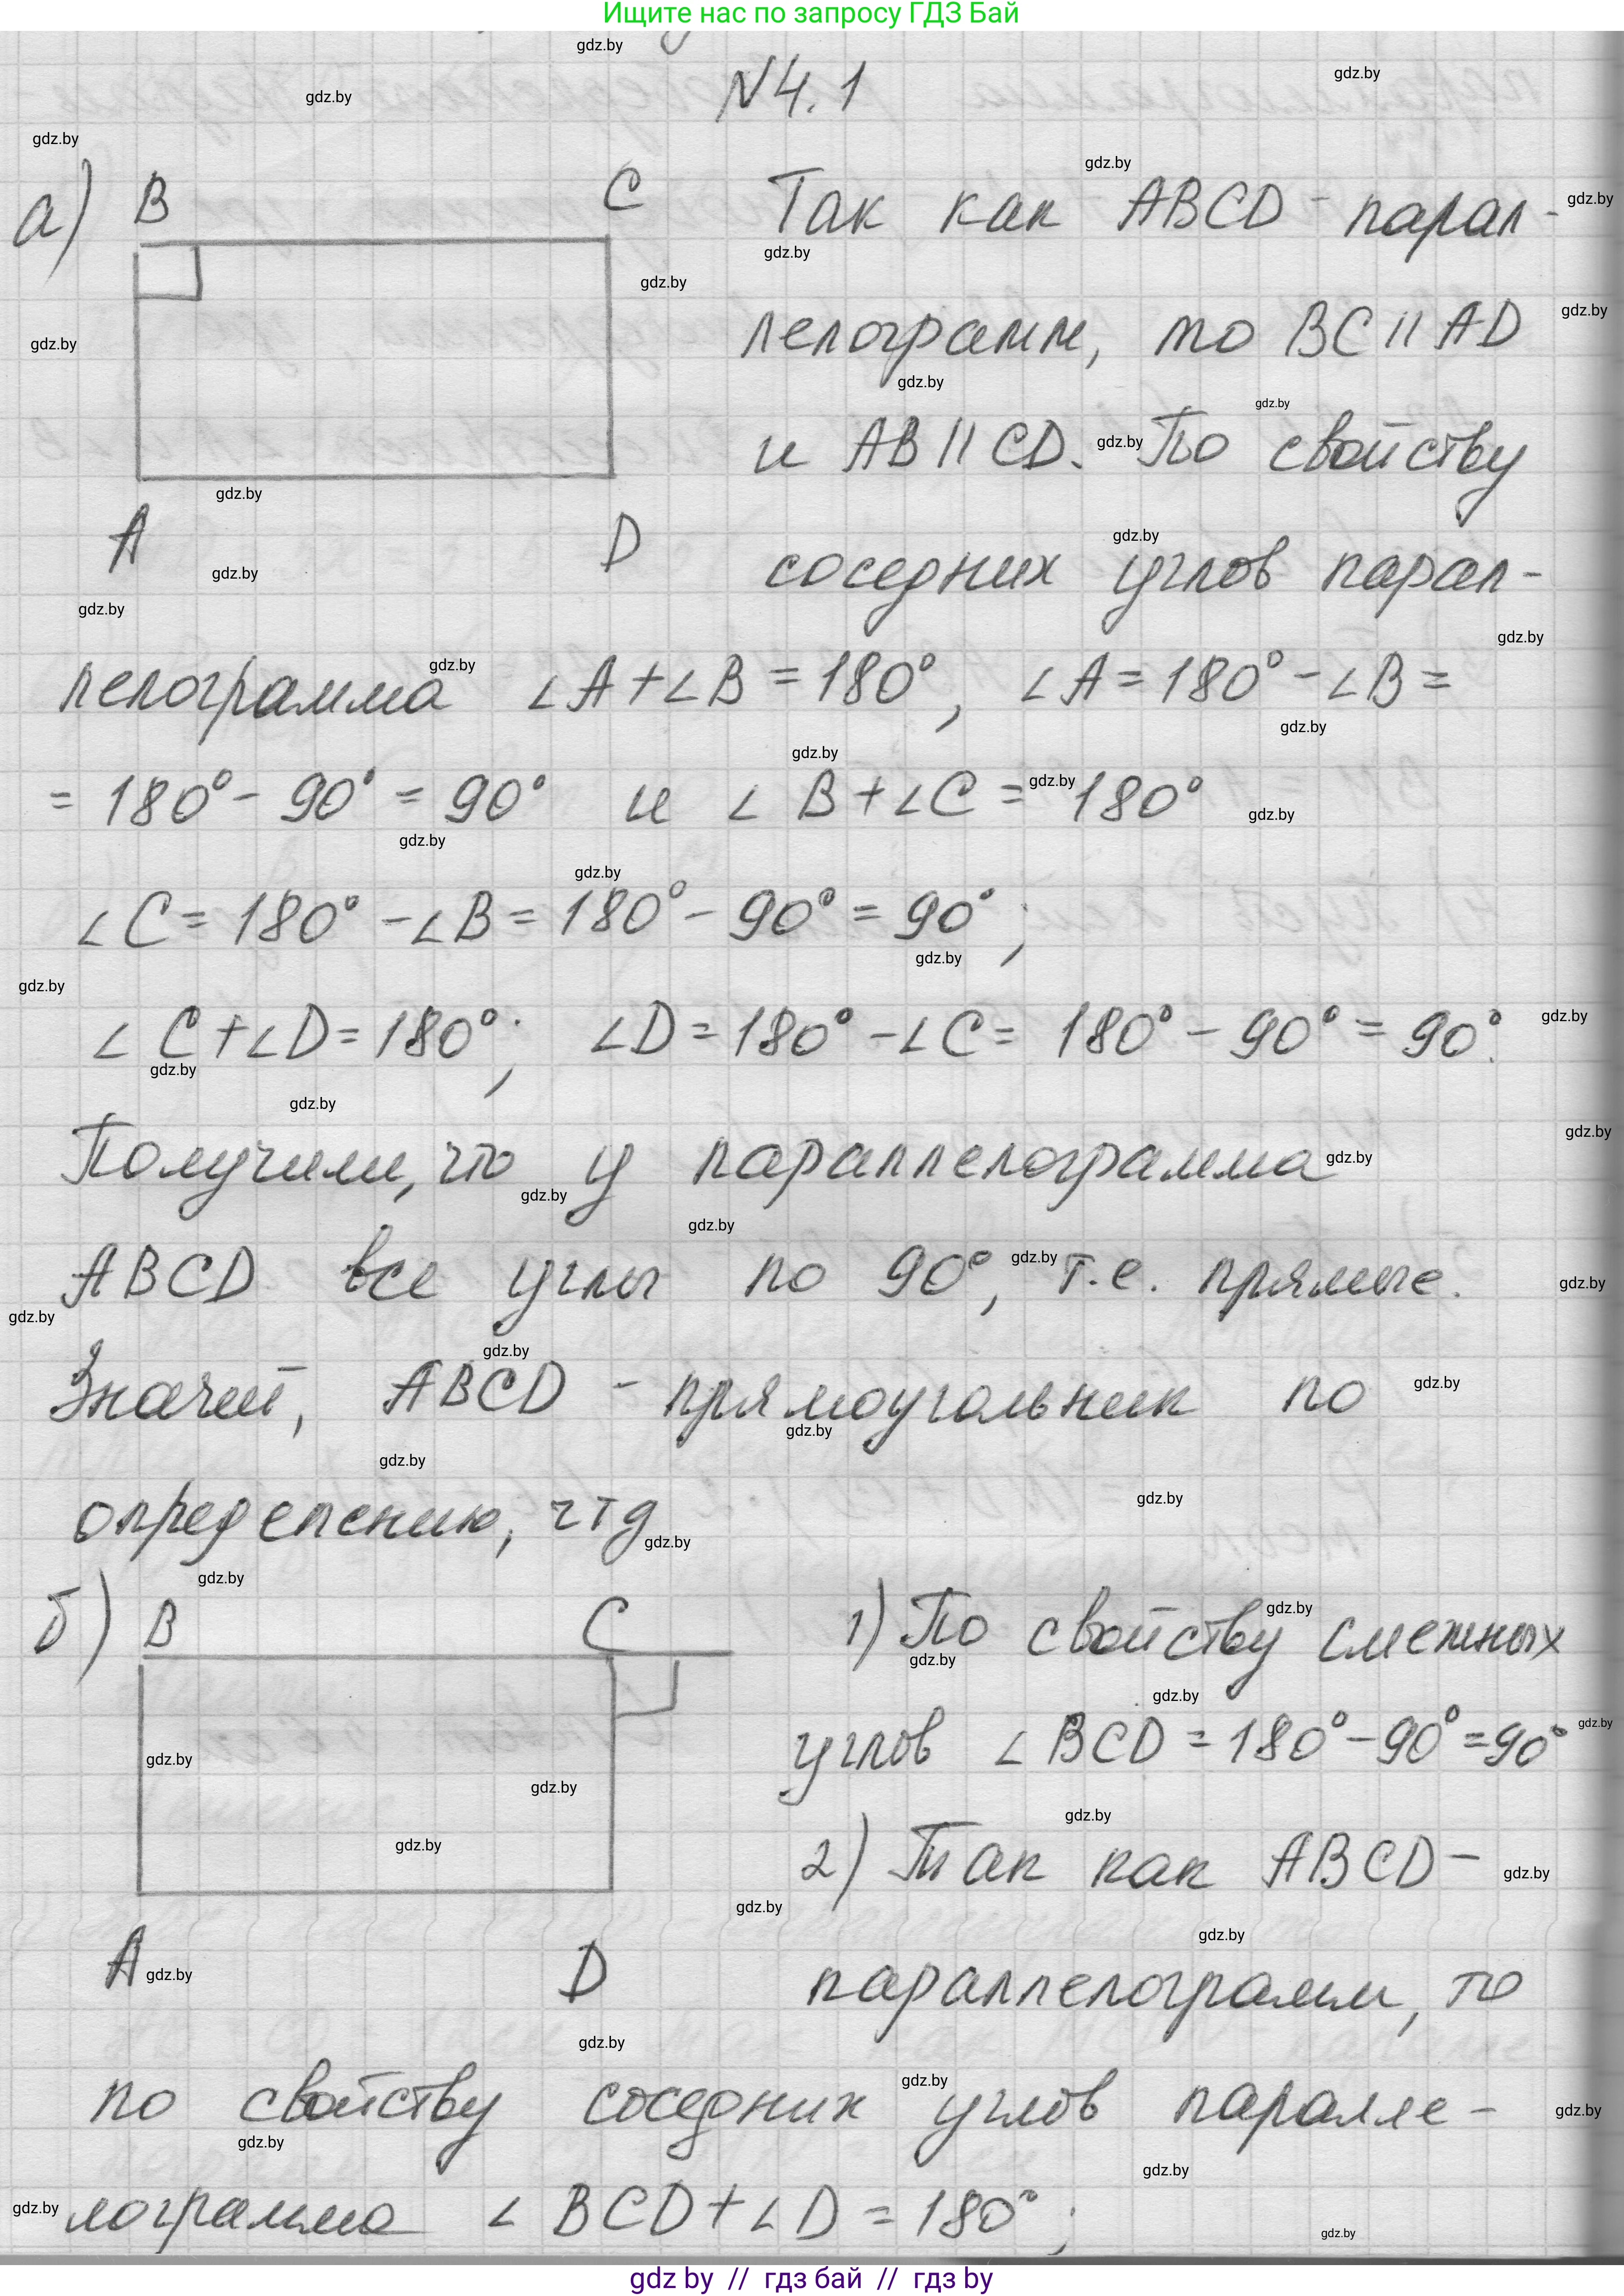 Ищите нас по запросу ГДЗ Бай
N4.1
а) B C Так как ABCD - парал-
лелограмм, то BC || AD
и AB || CD. По свойству
A D соседних углов парал-
лелограмма ∠A+∠B=180°, ∠A=180°-∠B=
=180°-90°=90° и ∠B+∠C=180°
∠C=180°-∠B=180°-90°=90°;
∠C+∠D=180°; ∠D=180°-∠C=180°-90°=90°.
Получили, что у параллелограмма
ABCD все углы по 90°, т.е. прямые.
Значит, ABCD - прямоугольник по
определению, чтд
б) B C 1) По свойству смежных
углов ∠BCD=180°-90°=90°
2) Так как ABCD -
A D параллелограмм, то
по свойству соседних углов паралле-
лограмма ∠BCD+∠D=180°;
gdz by // гдз бай // гдз by